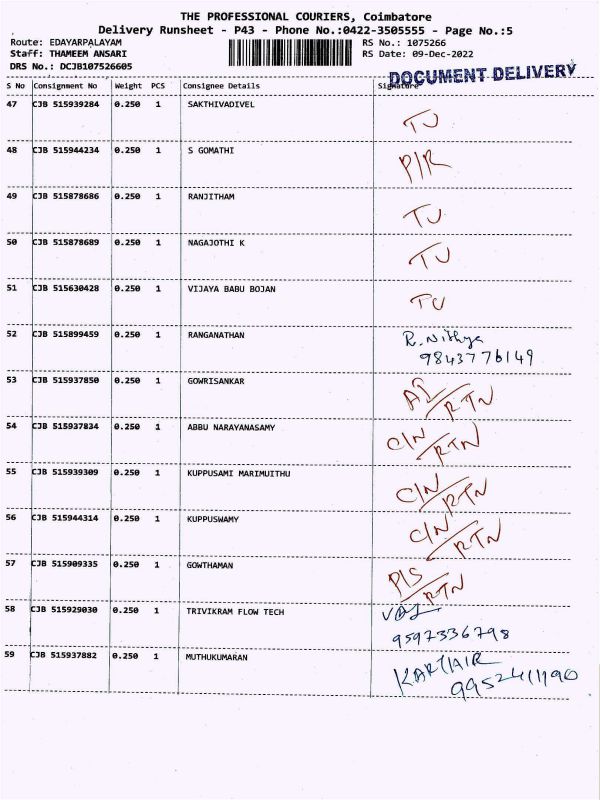 THE PROFESSIONAL COURIERS, Coimbatore
Delivery Runsheet - P43 - Phone No.:0422-3505555 - Page No.:5
Route: EDAYARPALAYAM RS No.: 1075266
Staff: THAMEEM ANSARI RS Date: 09-Dec-2022
DRS No.: DCJB107526605
DOCUMENT DELIVERY
S No Consignment No Weight PCS Consignee Details Signature
47 CJB 515939284 0.250 1 SAKTHIVADIVEL TU
48 CJB 515944234 0.250 1 S GOMATHI P/R
49 CJB 515878686 0.250 1 RANJITHAM TU
50 CJB 515878689 0.250 1 NAGAJOTHI K TU
51 CJB 515630428 0.250 1 VIJAYA BABU BOJAN TU
52 CJB 515899459 0.250 1 RANGANATHAN R. Nithya
9843776149
53 CJB 515937850 0.250 1 GOWRISANKAR RTN
54 CJB 515937834 0.250 1 ABBU NARAYANASAMY C/N RTN
55 CJB 515939309 0.250 1 KUPPUSAMI MARIMUITHU C/N RTN
56 CJB 515944314 0.250 1 KUPPUSWAMY C/N RTN
57 CJB 515909335 0.250 1 GOWTHAMAN P/S RTN
58 CJB 515929030 0.250 1 TRIVIKRAM FLOW TECH
9597336798
59 CJB 515937882 0.250 1 MUTHUKUMARAN KARTHIK
9952411190